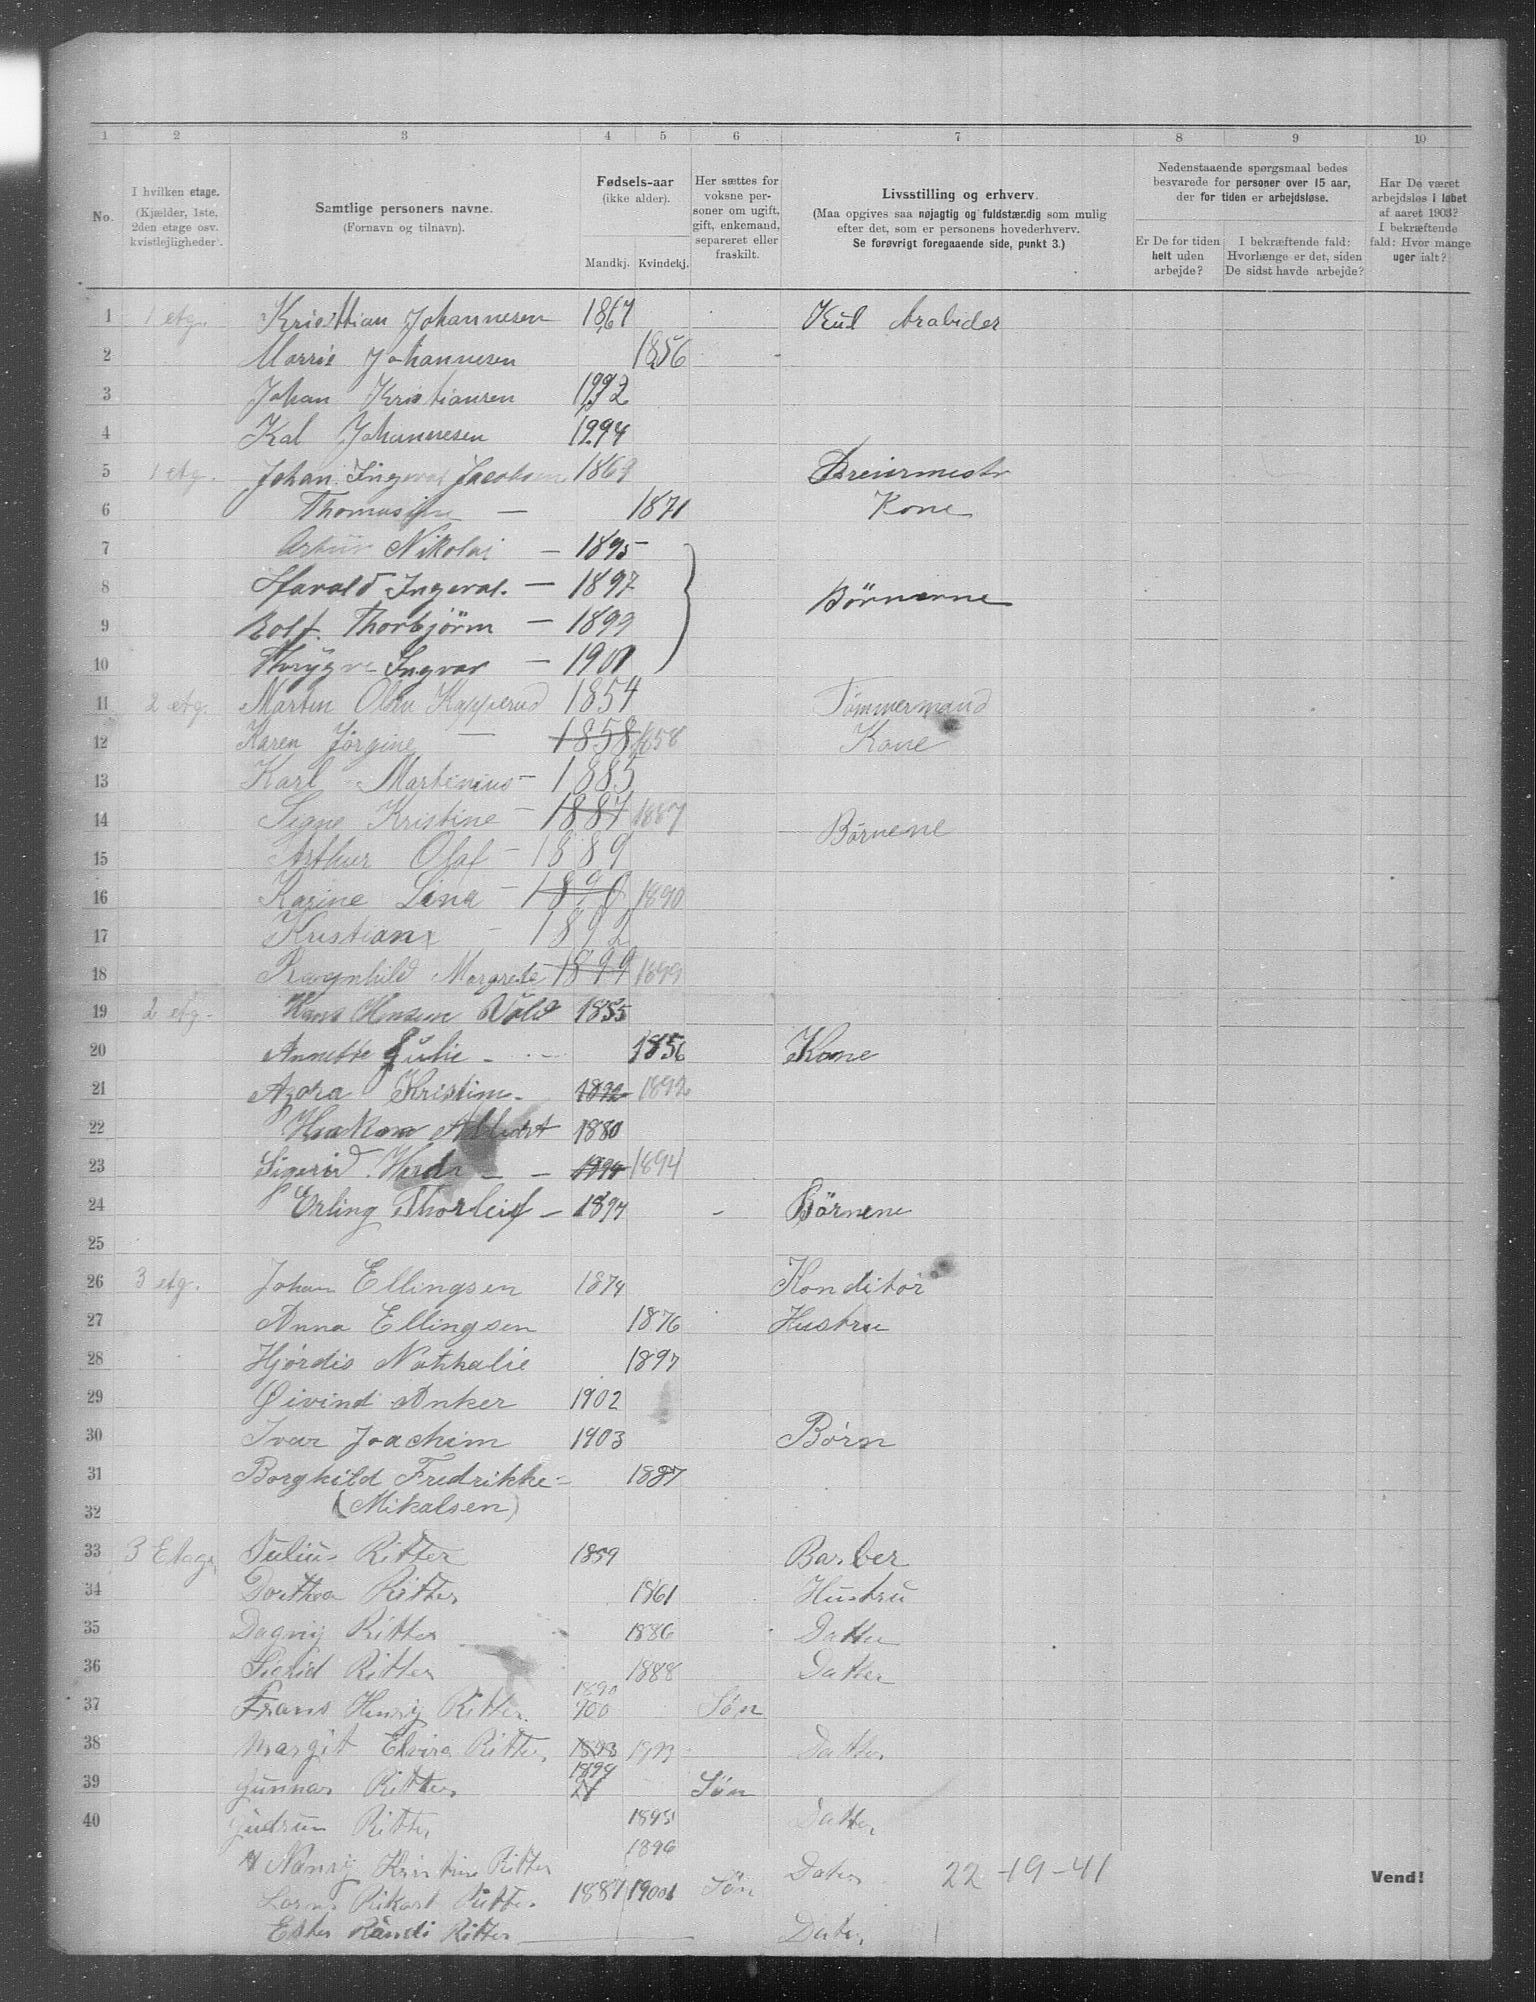 1 2 3 4 5 6 7 8 9 10
No.
I hvilken etage.
(Kjælder, 1ste, 2den etage osv. kvistleiligheder).
Samtlige personers navne.
(Fornavn og tilnavn).
Fødsels-aar
(ikke alder).
Mandkj. Kvindekj.
Her sættes for voksne personer om ugift, gift, enkemand, separeret eller fraskilt.
Livsstilling og erhverv.
(Maa opgives saa nøjagtig og fuldstændig som mulig efter det, som er personens hovederhverv.
Se forøvrigt foregaaende side, punkt 3.)
Nedenstaaende spørgsmaal bedes besvarede for personer over 15 aar, der for tiden er arbejdsløse.
Er De for tiden helt uden arbejde?
I bekræftende fald: Hvorlænge er det, siden De sidst havde arbejde?
Har De været arbejdsløs i løbet af aaret 1903? I bekræftende fald: Hvor mange uger ialt?
1 1 etg. Kristtian Johannesen 1867 Kul Arabider
2 Marrie Johannesen 1856
3 Johan Kristiansen
4 Kal Johannesen
5 1 etg. Johan Ingeval Jacobsen 1869 Dreiermestr
6 Thomasine — 1871 Kone
7 Artur Nikolai — 1895
8 Harald Ingeval. — 1897 Børnerne
9 Rolf. Thorbjörm — 1899
10 Thrygve Ingvar — 1901
11 2 etg. Martin Olsen Kapperud 1854 Tømmermand
12 Karen Jørgine — 1858 1858 Kone
13 Karl Martinius — 1885
14 Signe Kristine — 1887 1887 Børnene
15 Arthur Olaf — 1889
16 Karine Lina — 1890 1890
17 Kristian — 1892
18 Ragnhild Margrete 1899 1899
19 2 etg. Hans Hansen 1855
20 Annette Julie — 1856 Kone
21 Kristine — 1892 1892
22 Haakon Albert 1880
23 Sigerid — — 1894 1894
24 Erling Thorleif — 1897 Börnene
25
26 3 etg. Johan Ellingsen 1874 Konditor
27 Anna Ellingsen 1876 Hustru
28 Hjørdis Nathalie 1897
29 Øivind Anker 1902
30 Ivar Joachim 1903 Børn
31 Borghild Fredrikke — 1887
32 (Mikalsen)
33 3 Etage Julius Ritter 1859 Barber
34 Dorthea Ritter 1861 Hustru
35 Dagny Ritter 1886 Datter
36 Sigrid Ritter 1888 Datter
37 Frans Henry Ritter. 1890 900 Søn
38 Margit Elvira Ritter 1893 1893 Datter
39 Gunnar Ritter 1894 Søn
40 Gudrun Ritter 1895 Datter
Nansy Kristine Ritter 1896 Dater
Rikart Ritter 1887 19001 Søn
Ester Randi Ritter — Dater
22 - 19 - 41
Vend!